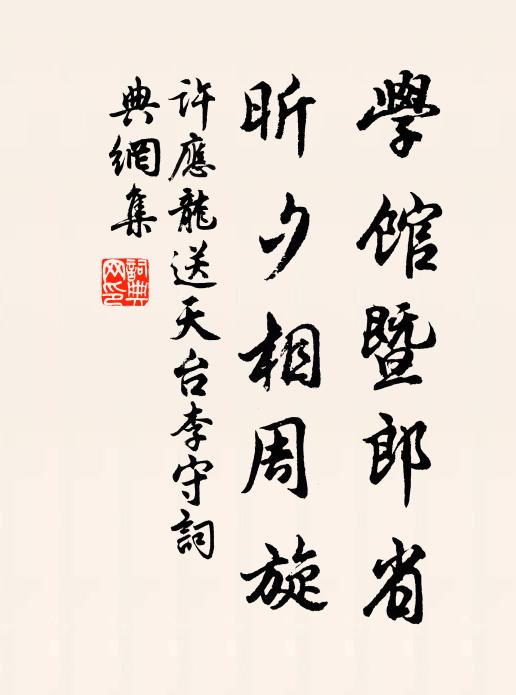 學館暨郎省
昕夕相周旋
許應龍送天台李守詞
典網集
詞典
网印